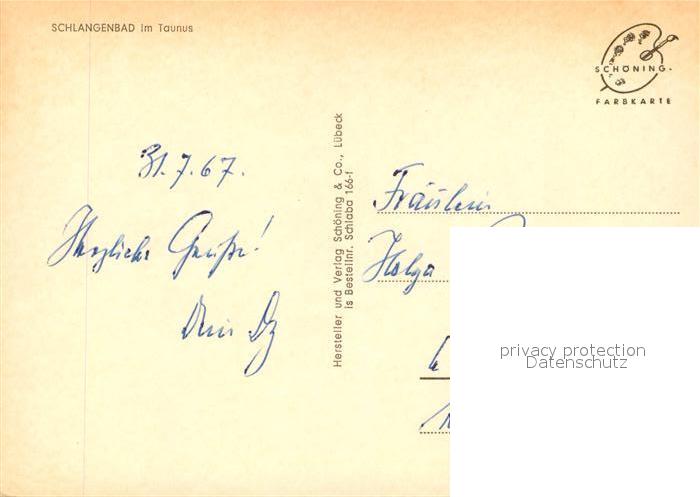 SCHLANGENBAD im Taunus
SCHÖNING
FARBKARTE
31.7.67.
Herzliche Grüße!
Dein
Hersteller und Verlag Schöning & Co., Lübeck
is Bestellnr. Schlaba 166-f
Fräulein
Helga
privacy protection
Datenschutz